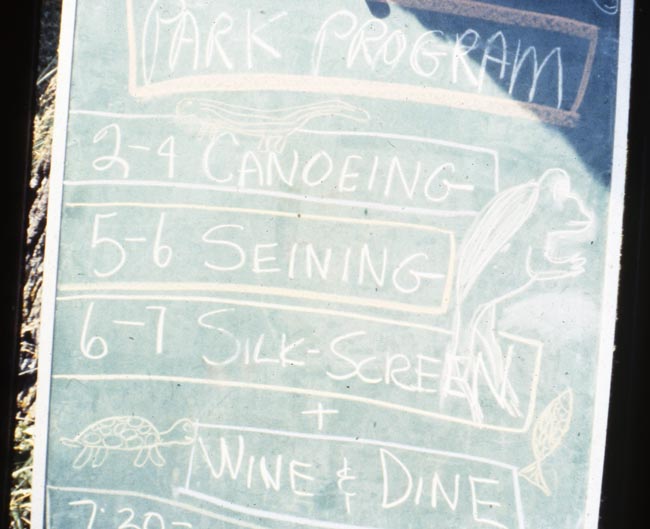 PARK PROGRAM
2-4 CANOEING
5-6 SEINING
6-7 SILK-SCREEN
+
WINE & DINE
7:30-